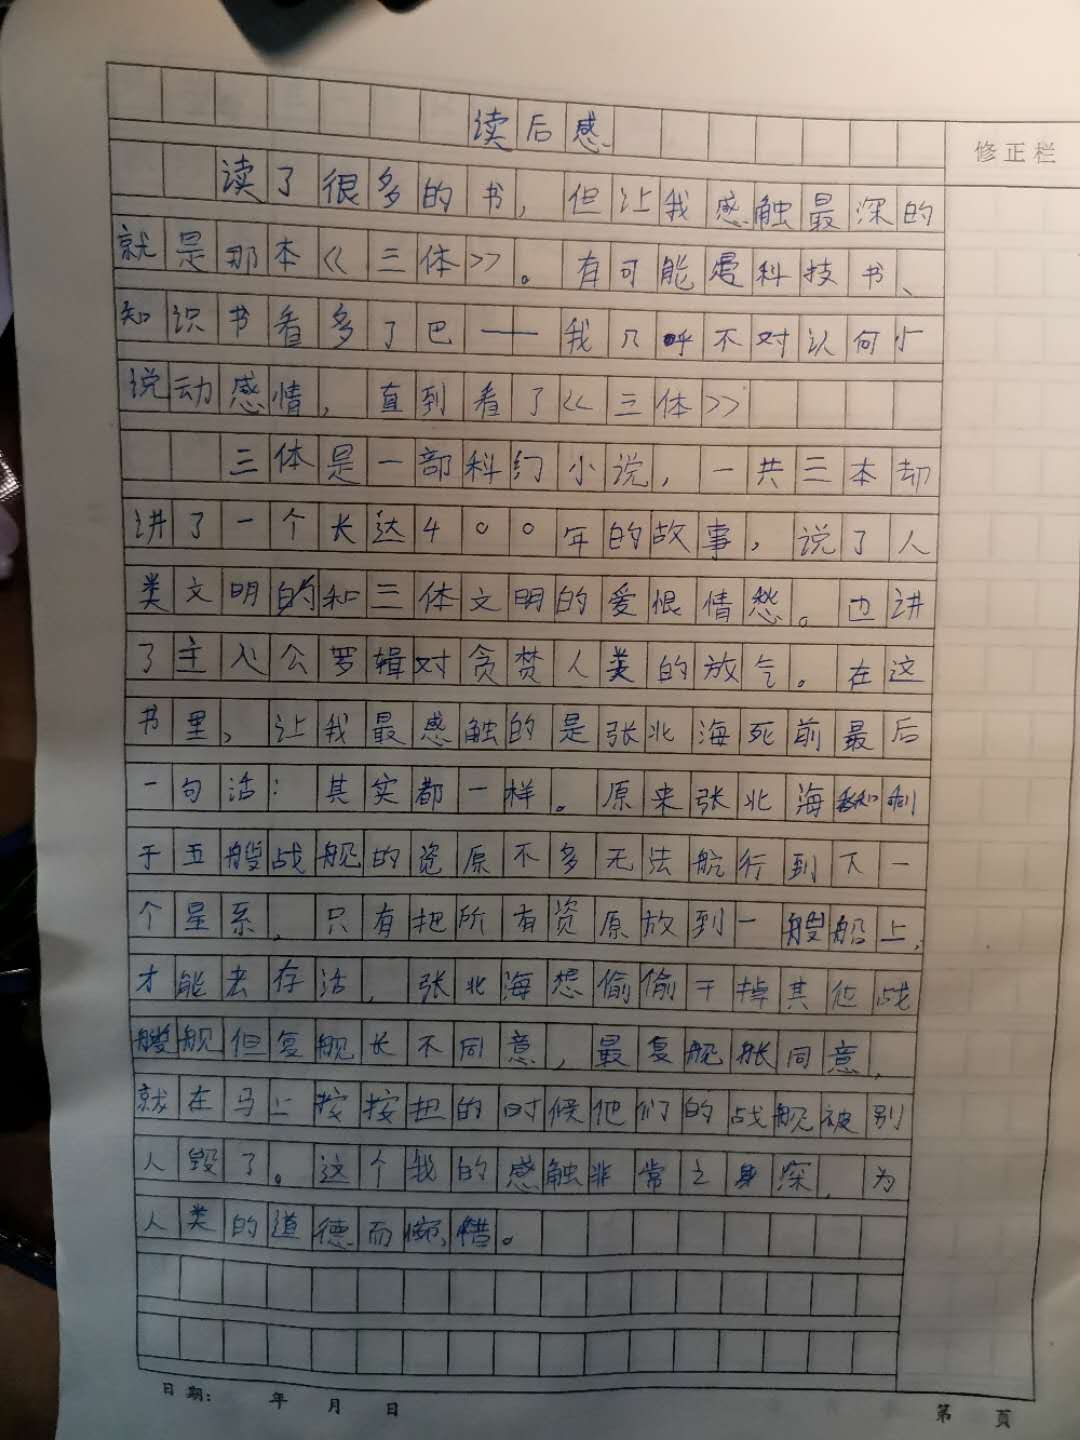 读后感
修正栏
读了很多的书，但让我感触最深的
就是那本《三体》。有可能是科技书、
知识书看多了巴——我几呼不对认何小
说动感情，直到看了《三体》
三体是一部科幻小说，一共三本却
讲了一个长达400年的故事，说了人
类文明的和三体文明的爱恨情愁。也讲
了主人公罗辑对贪婪人类的放气。在这
书里，让我最感触的是张北海死前最后
一句话：其实都一样。原来张北海和利
于五艘战舰的资原不多无法航行到下一
个星系，只有把所有资原放到一艘船上，
才能去存活，张北海想偷偷干掉其他战
艘舰但复舰长不同意，最复舰长同意，
就在马上按按扭的时候他们的战舰被别
人毁了。这个我的感触非常之深，为
人类的道德而惋惜。
日期： 年 月 日
第 页